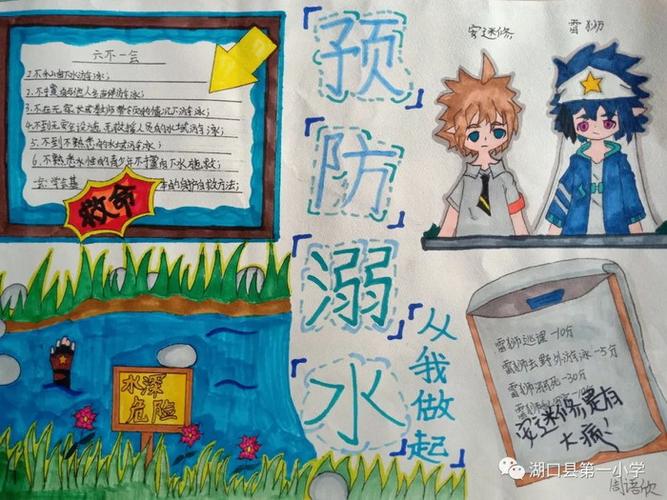 六不一会
1.不私自下水游泳;
2.不擅自与他人结伴游泳;
3.不在无家长或教师带领的情况下游泳;
4.不到无安全设施、无救援人员的水域游泳;
5.不到不熟悉的水域游泳;
6.不熟悉水性的青少年不擅自下水施救;
一会:学会基本的自护自救方法;
救命
水深
危险
预
防
溺
水
从我做起
安迷修
雷狮
雷狮逃课-10分
雷狮去野外游泳-5分
雷狮溺死-30分
安迷修是有
大病!
湖口县第一小学
周语欣